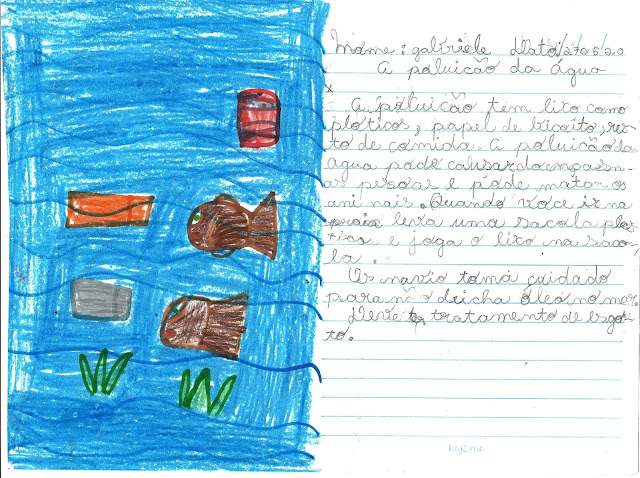 Nome: gabriele Data 27 05 20
A poluicão da água
A poluicão tem lixo como
plóticos, papel de bicoito, res
to de comida. A poluicão da
água pode causar doempas n
as pesoas e pode matar os
ani nais. Quando voce ir na
praia leva uma sacola plas
tica e joga o lixo na saco
la.
Os navio toma cuidado
para não deicha óleo no mar.
Deve te tratamento de esgo
to.